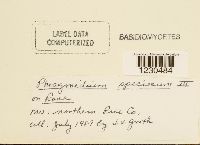 LABEL DATA
COMPUTERIZED
BASIDIOMYCETES
1230484
Phragmidium speciosum III
on Rosa
Mo. northern Pine Co.
coll. July 1907 by